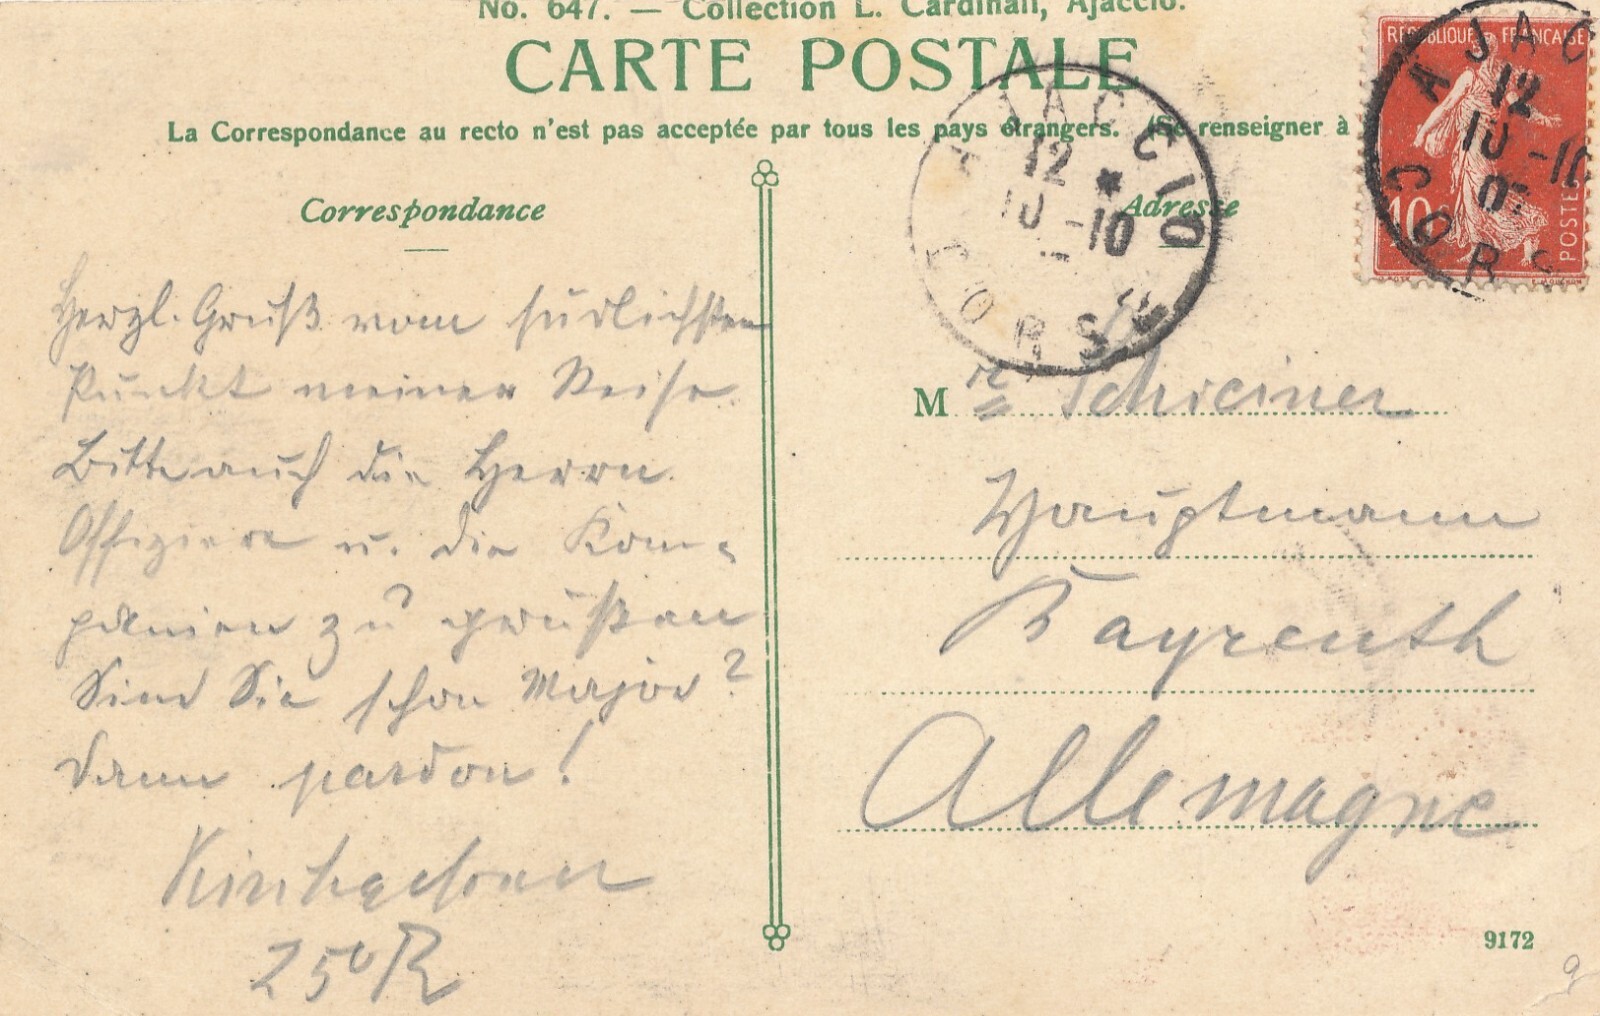 No. 647. — Collection L. Cardinali, Ajaccio.
CARTE POSTALE
La Correspondance au recto n'est pas acceptée par tous les pays étrangers. (Se renseigner à
Correspondance
Adresse
Herzl. Gruß vom südlichsten
Punkt meiner Reise.
Bitte auch die Herrn
Offiziere u. die Kom-
panien zu grüßen
Sind Sie schon Major?
Dann pardon!
M r Schreiner
Hauptmann
Bayreuth
Allemagne
9172
RÉPUBLIQUE FRANÇAISE
10c
POSTES
AJACCIO
12
10 -10
CORSE
AJAC
12
10 -10
CORS